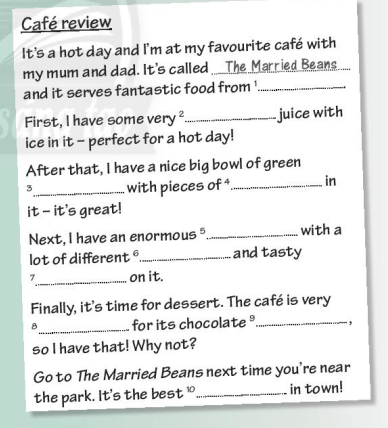 Café review
It's a hot day and I'm at my favourite café with
my mum and dad. It's called The Married Beans
and it serves fantastic food from ¹..............................
First, I have some very ².............................. juice with
ice in it – perfect for a hot day!
After that, I have a nice big bowl of green
³.............................. with pieces of ⁴.............................. in
it – it's great!
Next, I have an enormous ⁵.............................. with a
lot of different ⁶.............................. and tasty
⁷.............................. on it.
Finally, it's time for dessert. The café is very
⁸.............................. for its chocolate ⁹..............................,
so I have that! Why not?
Go to The Married Beans next time you're near
the park. It's the best ¹⁰.............................. in town!